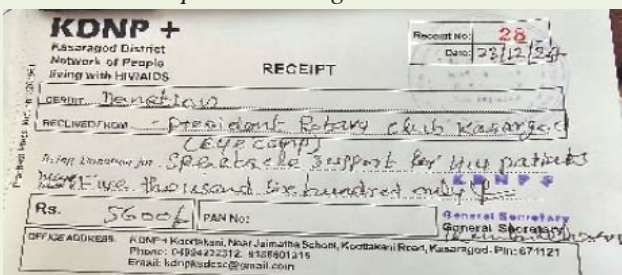 KDNP +
Kasaragod District
Network of People
living with HIV/AIDS
RECEIPT
Receipt No: 28
Date: 23/12/24
CREDIT Donation
RECEIVED FROM President Rotary Club Kasargod
(Eye camp)
Being Donation for Spectacle Support for HIV patients
Five thousand six hundred only
KDNP+
Rs. 5600/- PAN No:
General Secretary
General Secretary
OFFICE ADDRESS: KDNP+ Koottakani, Near Jaimatha School, Koottakani Road, Kasaragod. Pin: 671121
Phone: 04994222312, 9188601216
Email: kdnpksdcsc@gmail.com